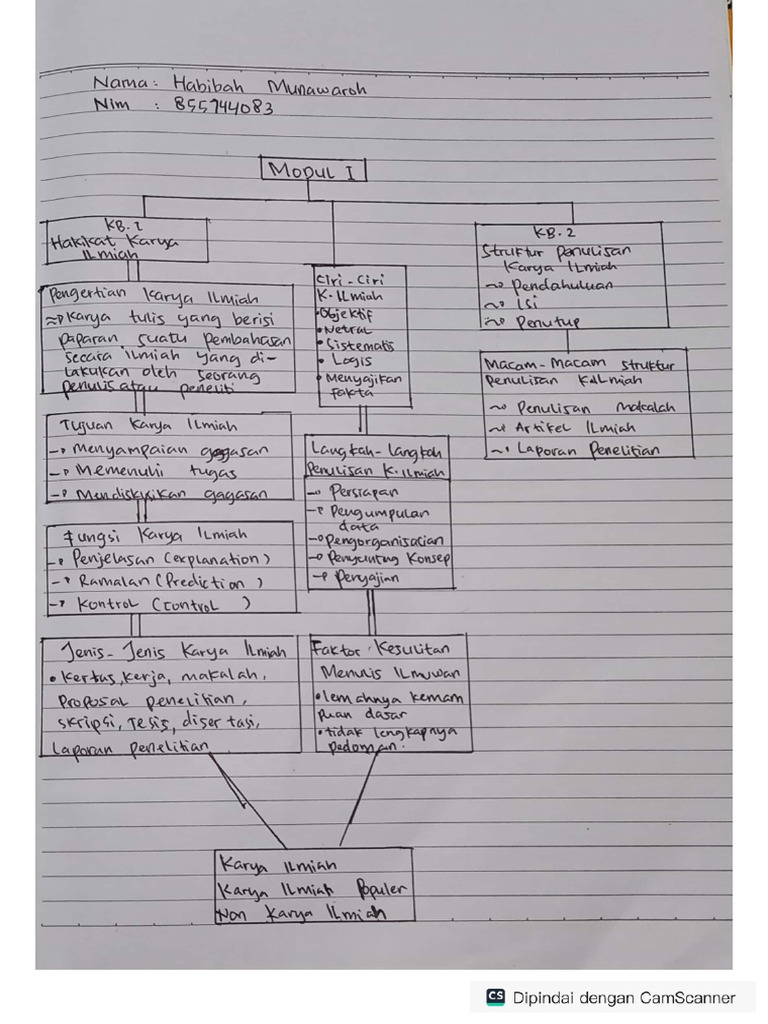 Nama : Habibah Munawaroh
Nim : 855744083
Modul I
KB. 1
Hakikat Karya
ILmiah
Pengertian Karya ILmiah
Karya tulis yang berisi
paparan suatu pembahasan
secara ilmiah yang di-
lakukan oleh seorang
penulis atau peneliti
Tujuan Karya ILmiah
→ Menyampaian gagasan
→ Memenuhi tugas
→ Mendiskusikan gagasan
Fungsi Karya ILmiah
→ Penjelasan (explanation)
→ Ramalan (Prediction )
→ Kontrol (Control )
Jenis - Jenis Karya ILmiah
• Kertas, kerja, makalah,
Proposal penelitian,
skripsi, Tesis, disertasi,
Laporan penelitian
Ciri - Ciri
K. ILmiah
• Objektif
• Netral
• Sistematis
• Logis
• Menyajikan
fakta
Langkah - Langkah
Penulisan K. ilmiah
→ Persiapan
→ Pengumpulan
data
→ Pengorganisasian
→ Penyunting Konsep
→ Penyajian
Faktor Kesulitan
Menulis ILmuwan
• lemahnya kemam
puan dasar
• tidak lengkapnya
pedoman.
KB. 2
Struktur Penulisan
Karya ILmiah
~ Pendahuluan
~ Isi
~ Penutup
Macam - Macam struktur
Penulisan K.ILmiah
~ Penulisan Makalah
~ Artikel ILmiah
~ Laporan Penelitian
Karya ILmiah
Karya ILmiah Populer
Non Karya ILmiah
CS Dipindai dengan CamScanner